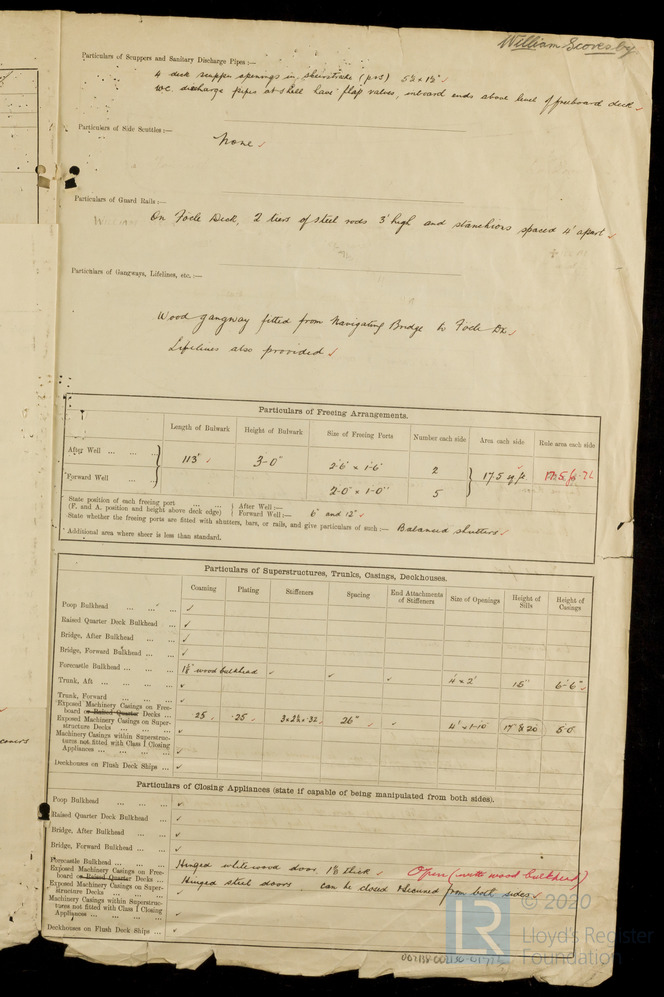 William Scoresby
Particulars of Scuppers and Sanitary Discharge Pipes :—
4 deck scupper openings in sheerstrake (p+s) 5½ x 1½ ✓
W.C. discharge pipes at shell have flap valves, inboard ends above level of freeboard deck ✓
Particulars of Side Scuttles :—
None ✓
Particulars of Guard Rails :—
On Focle Deck, 2 tiers of steel rods 3' high and stanchions spaced 4' apart ✓
Particulars of Gangways, Lifelines, etc. :—
Wood gangway fitted from Navigating Bridge to Focle Dk ✓
Lifelines also provided ✓
Particulars of Freeing Arrangements.
Length of Bulwark Height of Bulwark Size of Freeing Ports Number each side Area each side Rule area each side
After Well ... ... ... 113' 3-0" 2-6" x 1-6" 2 17.5 sq ft 17.5
Forward Well ... ... 2-0" x 1-0" 5
State position of each freeing port ... ... After Well :—
(F. and A. position and height above deck edge) Forward Well :— 6" and 12" ✓
State whether the freeing ports are fitted with shutters, bars, or rails, and give particulars of such :— Balanced shutters ✓
Additional area where sheer is less than standard.
Particulars of Superstructures, Trunks, Casings, Deckhouses.
Coaming Plating Stiffeners Spacing End Attachments of Stiffeners Size of Openings Height of Sills Height of Casings
Poop Bulkhead ... ... ... ✓
Raised Quarter Deck Bulkhead ... ✓
Bridge, After Bulkhead ... ... ✓
Bridge, Forward Bulkhead ... ... ✓
Forecastle Bulkhead ... ... ... 1⅞" wood bulkhead ✓ ✓ ✓ 4' x 2' 15" 6'-6" ✓
Trunk, Aft ... ... ... ✓
Trunk, Forward ... ... ... ✓
Exposed Machinery Casings on Free-
board or Raised Quarter Decks ... .25 .25 3 x 2½ x .32 26" ✓ ✓ 4' x 1-10 17" & 20 5'0"
Exposed Machinery Casings on Super-
structure Decks ... ... ... ✓
Machinery Casings within Superstruc-
tures not fitted with Class I Closing
Appliances ... ... ... ... ✓
Deckhouses on Flush Deck Ships ... ✓
Particulars of Closing Appliances (state if capable of being manipulated from both sides).
Poop Bulkhead ... ... ... ✓
Raised Quarter Deck Bulkhead ... ✓
Bridge, After Bulkhead ... ... ✓
Bridge, Forward Bulkhead ... ... ✓
Forecastle Bulkhead ... ... ... Hinged whitewood door 1⅞ thick ✓ Open (with wood bulkhead)
Exposed Machinery Casings on Free-
board or Raised Quarter Decks ... Hinged steel doors, can be closed & secured from both sides ✓
Exposed Machinery Casings on Super-
structure Decks ... ... ... ✓
Machinery Casings within Superstruc-
tures not fitted with Class I Closing
Appliances ... ... ... ... ✓
Deckhouses on Flush Deck Ships ... ✓
LR
© 2020
Lloyd's Register
Foundation